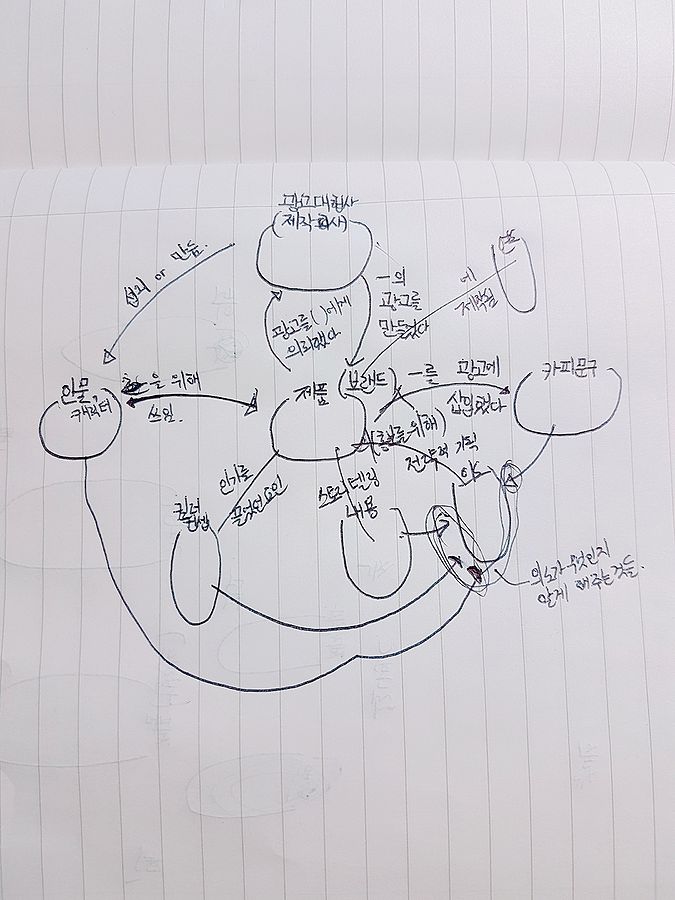 광고대행사
(제작회사)
섭외 or 만듦.
광고를( )에게
의뢰했다
―의
광고를
만들었다
에
제작됨
인물
캐릭터
을 위해
쓰임.
제품
(브랜드)
―를 광고에
삽입했다
카피문구
(홍보를 위해)
전략적 기획
의도
인기를
끌었던 요인
스토리텔링
내용
킬러
컨셉
의도가 무엇인지
알게 해주는것들.